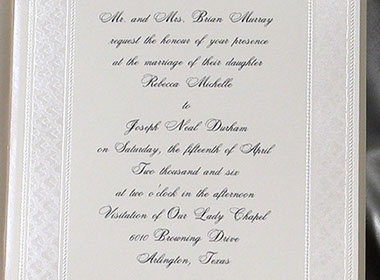 Mr. and Mrs. Brian Murray
request the honour of your presence
at the marriage of their daughter
Rebecca Michelle
to
Joseph Neal Durham
on Saturday, the fifteenth of April
Two thousand and six
at two o'clock in the afternoon
Visitation of Our Lady Chapel
6010 Browning Drive
Arlington, Texas